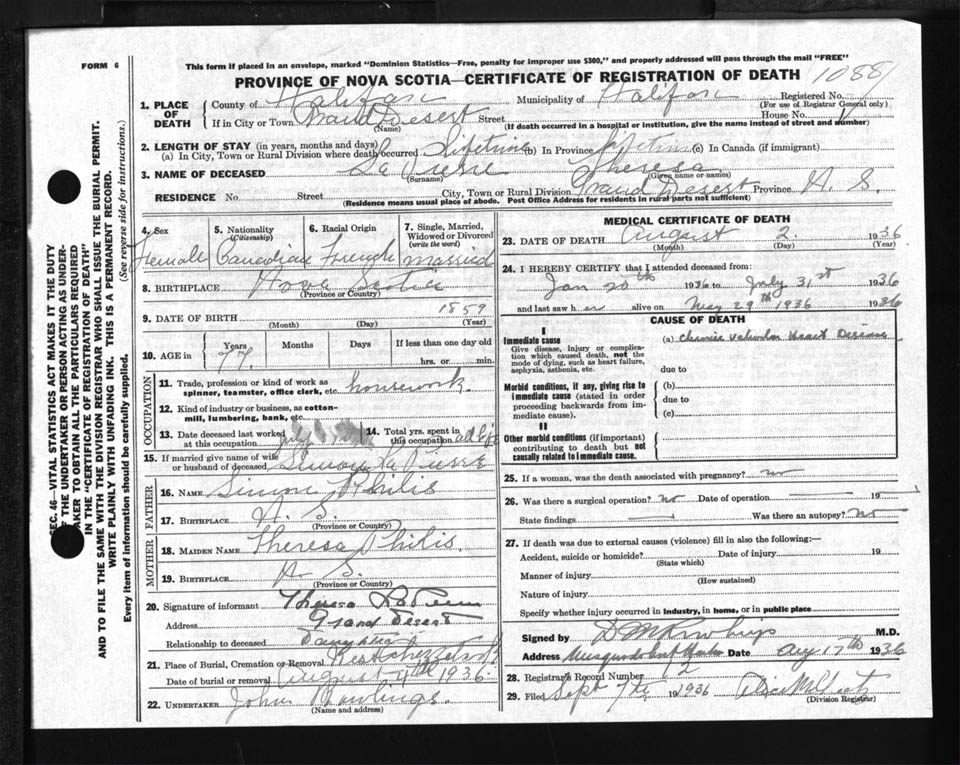 FORM 6
This form if placed in an envelope, marked "Dominion Statistics—Free, penalty for improper use $300," and properly addressed will pass through the mail "FREE"
PROVINCE OF NOVA SCOTIA—CERTIFICATE OF REGISTRATION OF DEATH 1088
1. PLACE OF DEATH
County of Halifax Municipality of Halifax Registered No.
(For use of Registrar General only)
If in City or Town Grand Desert Street House No.
(Name) (If death occurred in a hospital or institution, give the name instead of street and number)
2. LENGTH OF STAY (in years, months and days)
(a) In City, Town or Rural Division where death occurred Lifetime (b) In Province Lifetime (c) In Canada (if immigrant)
3. NAME OF DECEASED La Pierre Theresa
(Surname) (Given name or names)
RESIDENCE No. Street City, Town or Rural Division Grand Desert Province N. S.
(Residence means usual place of abode. Post Office Address for residents in rural parts not sufficient)
SEC. 46—VITAL STATISTICS ACT MAKES IT THE DUTY
OF THE UNDERTAKER OR PERSON ACTING AS UNDER-
TAKER TO OBTAIN ALL THE PARTICULARS REQUIRED
IN THE "CERTIFICATE OF REGISTRATION OF DEATH"
AND TO FILE THE SAME WITH THE DIVISION REGISTRAR WHO SHALL ISSUE THE BURIAL PERMIT.
WRITE PLAINLY WITH UNFADING INK. THIS IS A PERMANENT RECORD.
Every item of information should be carefully supplied. (See reverse side for instructions.)
4. Sex
Female
5. Nationality
(Citizenship)
Canadian
6. Racial Origin
French
7. Single, Married,
Widowed or Divorced
(write the word)
married
8. BIRTHPLACE Nova Scotia
(Province or Country)
9. DATE OF BIRTH 1859
(Month) (Day) (Year)
10. AGE in
Years Months Days If less than one day old
77 hrs. or min.
OCCUPATION
11. Trade, profession or kind of work as
spinner, teamster, office clerk, etc. housework.
12. Kind of industry or business, as cotton-
mill, lumbering, bank, etc.
13. Date deceased last worked
at this occupation July
14. Total yrs. spent in
this occupation all life
15. If married give name of wife
or husband of deceased Simon La Pierre
FATHER
16. NAME Simon Philis
17. BIRTHPLACE N. S.
(Province or Country)
MOTHER
18. MAIDEN NAME Theresa Philis.
19. BIRTHPLACE N. S.
(Province or Country)
20. Signature of informant Theresa LaPierre
Address Grand Desert
Relationship to deceased Daughter
21. Place of Burial, Cremation or Removal West Chezzetcook
Date of burial or removal August 4th 1936
22. UNDERTAKER John Rawlings.
(Name and address)
MEDICAL CERTIFICATE OF DEATH
23. DATE OF DEATH August 2. 1936
(Month) (Day) (Year)
24. I HEREBY CERTIFY that I attended deceased from:
Jan 20th 1936 to July 31st 1936
and last saw her alive on May 29th 1936 1936
CAUSE OF DEATH
I
Immediate cause
Give disease, injury or complica-
tion which caused death, not the
mode of dying, such as heart failure,
asphyxia, asthenia, etc.
(a) Chronic Valvular Heart Disease
due to
Morbid conditions, if any, giving rise to
immediate cause (stated in order
proceeding backwards from im-
mediate cause).
(b)
due to
(c)
II
Other morbid conditions (if important)
contributing to death but not
causally related to immediate cause.
25. If a woman, was the death associated with pregnancy? no
26. Was there a surgical operation? no Date of operation 19
State findings Was there an autopsy? no
27. If death was due to external causes (violence) fill in also the following:—
Accident, suicide or homicide? Date of injury 19
(State which)
Manner of injury
(How sustained)
Nature of injury
Specify whether injury occurred in industry, in home, or in public place
Signed by M.D.
Address Musquodoboit Harbor Date Aug 17th 1936
28. Registrar's Record Number
29. Filed Sept 7th 1936
(Division Registrar)